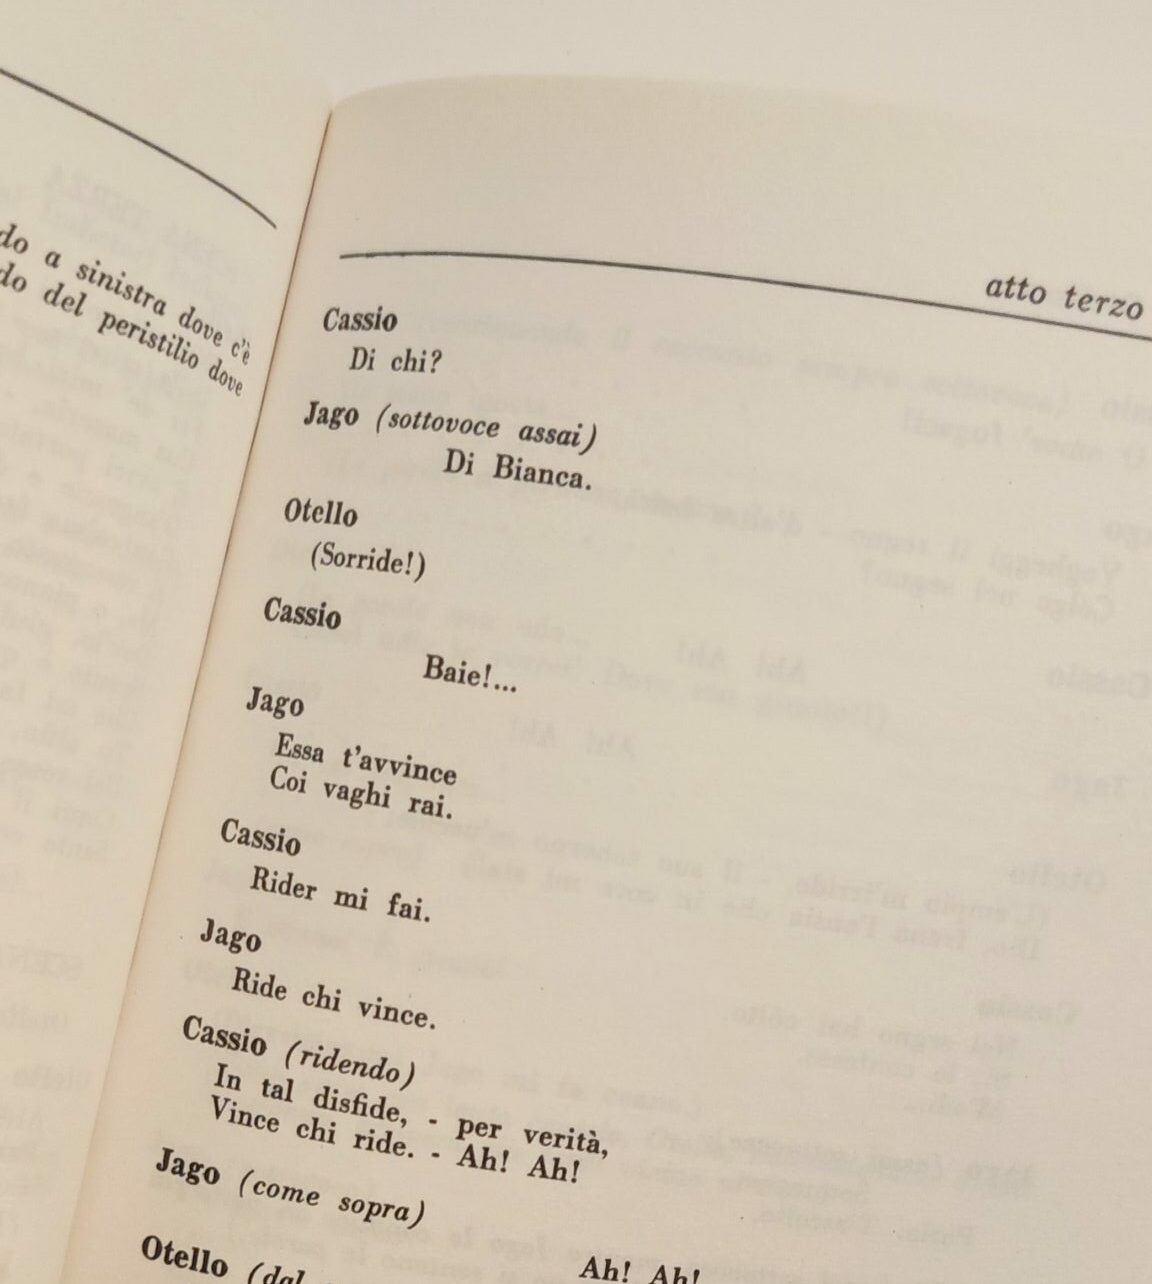 do a sinistra dove c'è
do del peristilio dove
atto terzo
Cassio
Di chi?
Jago (sottovoce assai)
Di Bianca.
Otello
(Sorride!)
Cassio
Baie!...
Jago
Essa t'avvince
Coi vaghi rai.
Cassio
Rider mi fai.
Jago
Ride chi vince.
Cassio (ridendo)
In tal disfide, - per verità,
Vince chi ride. - Ah! Ah!
Jago (come sopra)
Ah! Ah!
Otello (dal